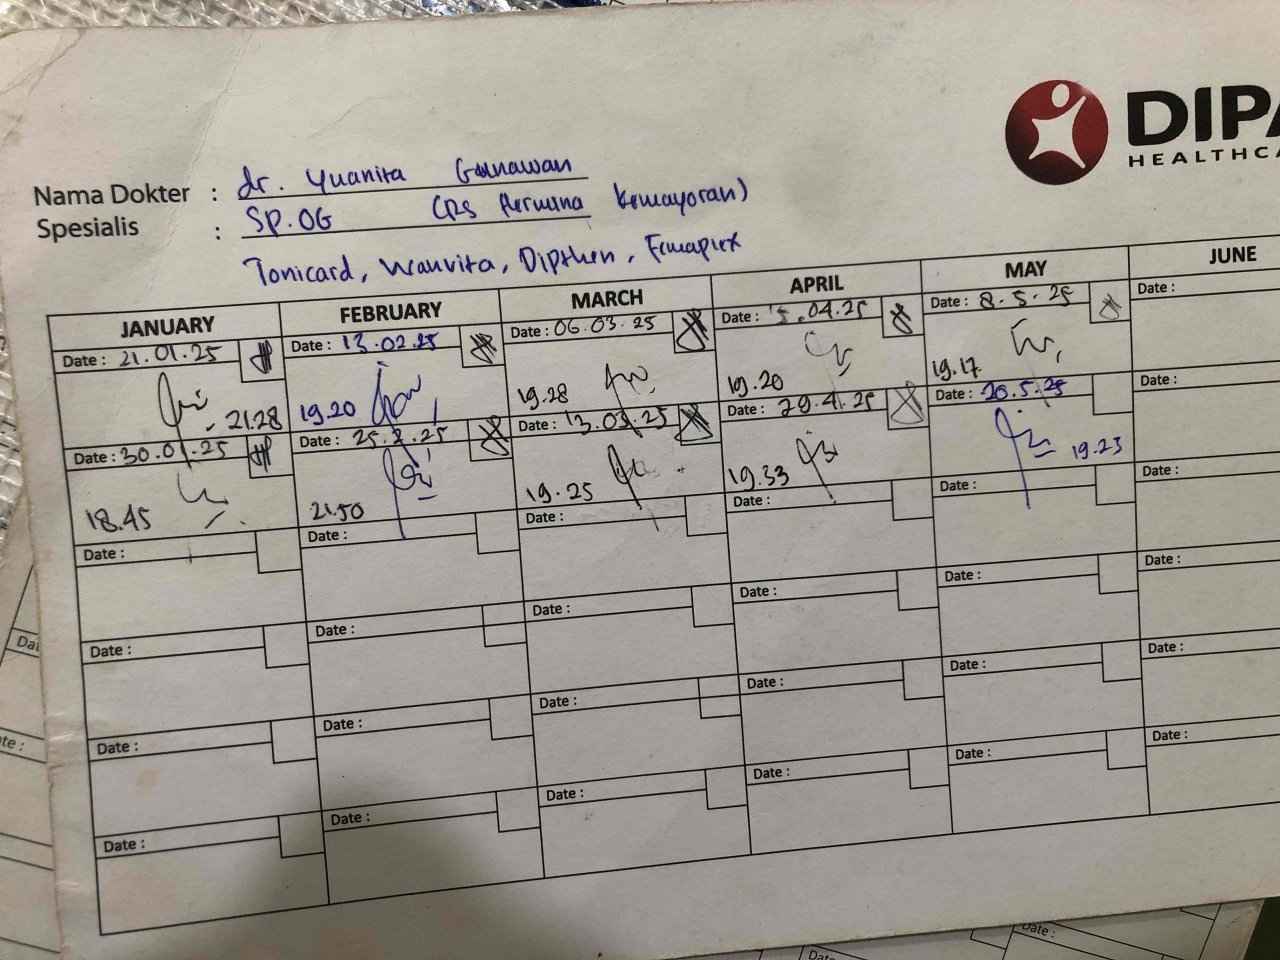 DIPA
HEALTHCA
Nama Dokter : dr. Yuanita Gunawan
Spesialis : SP.OG (RS Hermina Kemayoran)
Tonicard, Wanvita, Dipthen,
JANUARY FEBRUARY MARCH APRIL MAY JUNE
Date : 21.01.25 Date : 13.02.25 Date : 06.03.25 Date : 15.04.25 Date : 8.5.25 Date :
21.28 19.20 19.28 19.20 19.17
Date : 30.01.25 Date : 25.2.25 Date : 13.03.25 Date : 29.4.25 Date : 20.5.25 Date :
18.45 21.50 19.25 19.33 19.23
Date : Date : Date : Date : Date : Date :
Date : Date : Date : Date : Date : Date :
Date : Date : Date : Date : Date : Date :
Date : Date : Date : Date : Date : Date :
Dat
te :
Date :
Date :